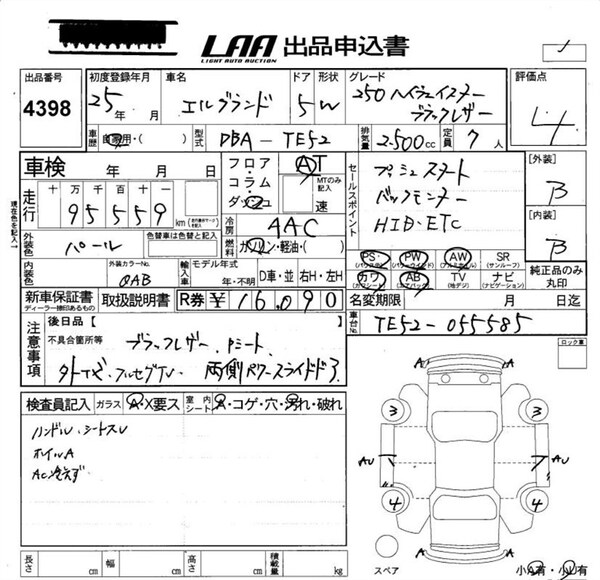 LAA 出品申込書
LIGHT AUTO AUCTION
出品番号 初度登録年月 車名 ドア 形状 グレード 評価点
4398 25年 月 エルグランド 5 W 250 ハイウェイスター 4
ブラックレザー
車歴 自家用・( ) 型式 DBA-TE52 排気量 2.500cc 定員 7人
車検 年 月 日 フロア・コラム・ダッシュ AT MTのみ記入 速 セールスポイント プッシュスタート [外装] B
走行 十 万 千 百 十 一 バックモニター
95559 km 冷房 AAC HID・ETC [内装] B
現在色を記入
外装色 パール 色替車は色替と記入 燃料 ガソリン・軽油・( )
PS (パワステ) PW (パワーウインド) AW (アルミホイール) SR (サンルーフ) 純正品のみ丸印
内装色 外装カラーNo. QAB 輸入車 モデル年式 年・不明 D車・並 右H・左H
カワ (カワシート) AB (エアバッグ) TV (地デジ) ナビ (ナビゲーション)
新車保証書 取扱説明書 R券 ¥16.090 名変期限 月 日迄
ディーラー捺印あるもの
車台No. TE52-055585
注意事項 後日品【 】
不具合箇所等 ブラックレザー、Pシート
外TV、フルセグTV 両側パワースライドドア
ロック車
検査員記入 ガラス A・X要ス 室内シート A・コゲ・穴・汚れ・破れ
ハンドル・シートスレ
ホイルA
AC冷えず
A
3 3
A A
AU AU
4 4
A A
スペア 小A有・小U有
長さ cm 幅 cm 高さ cm 積載量 kg